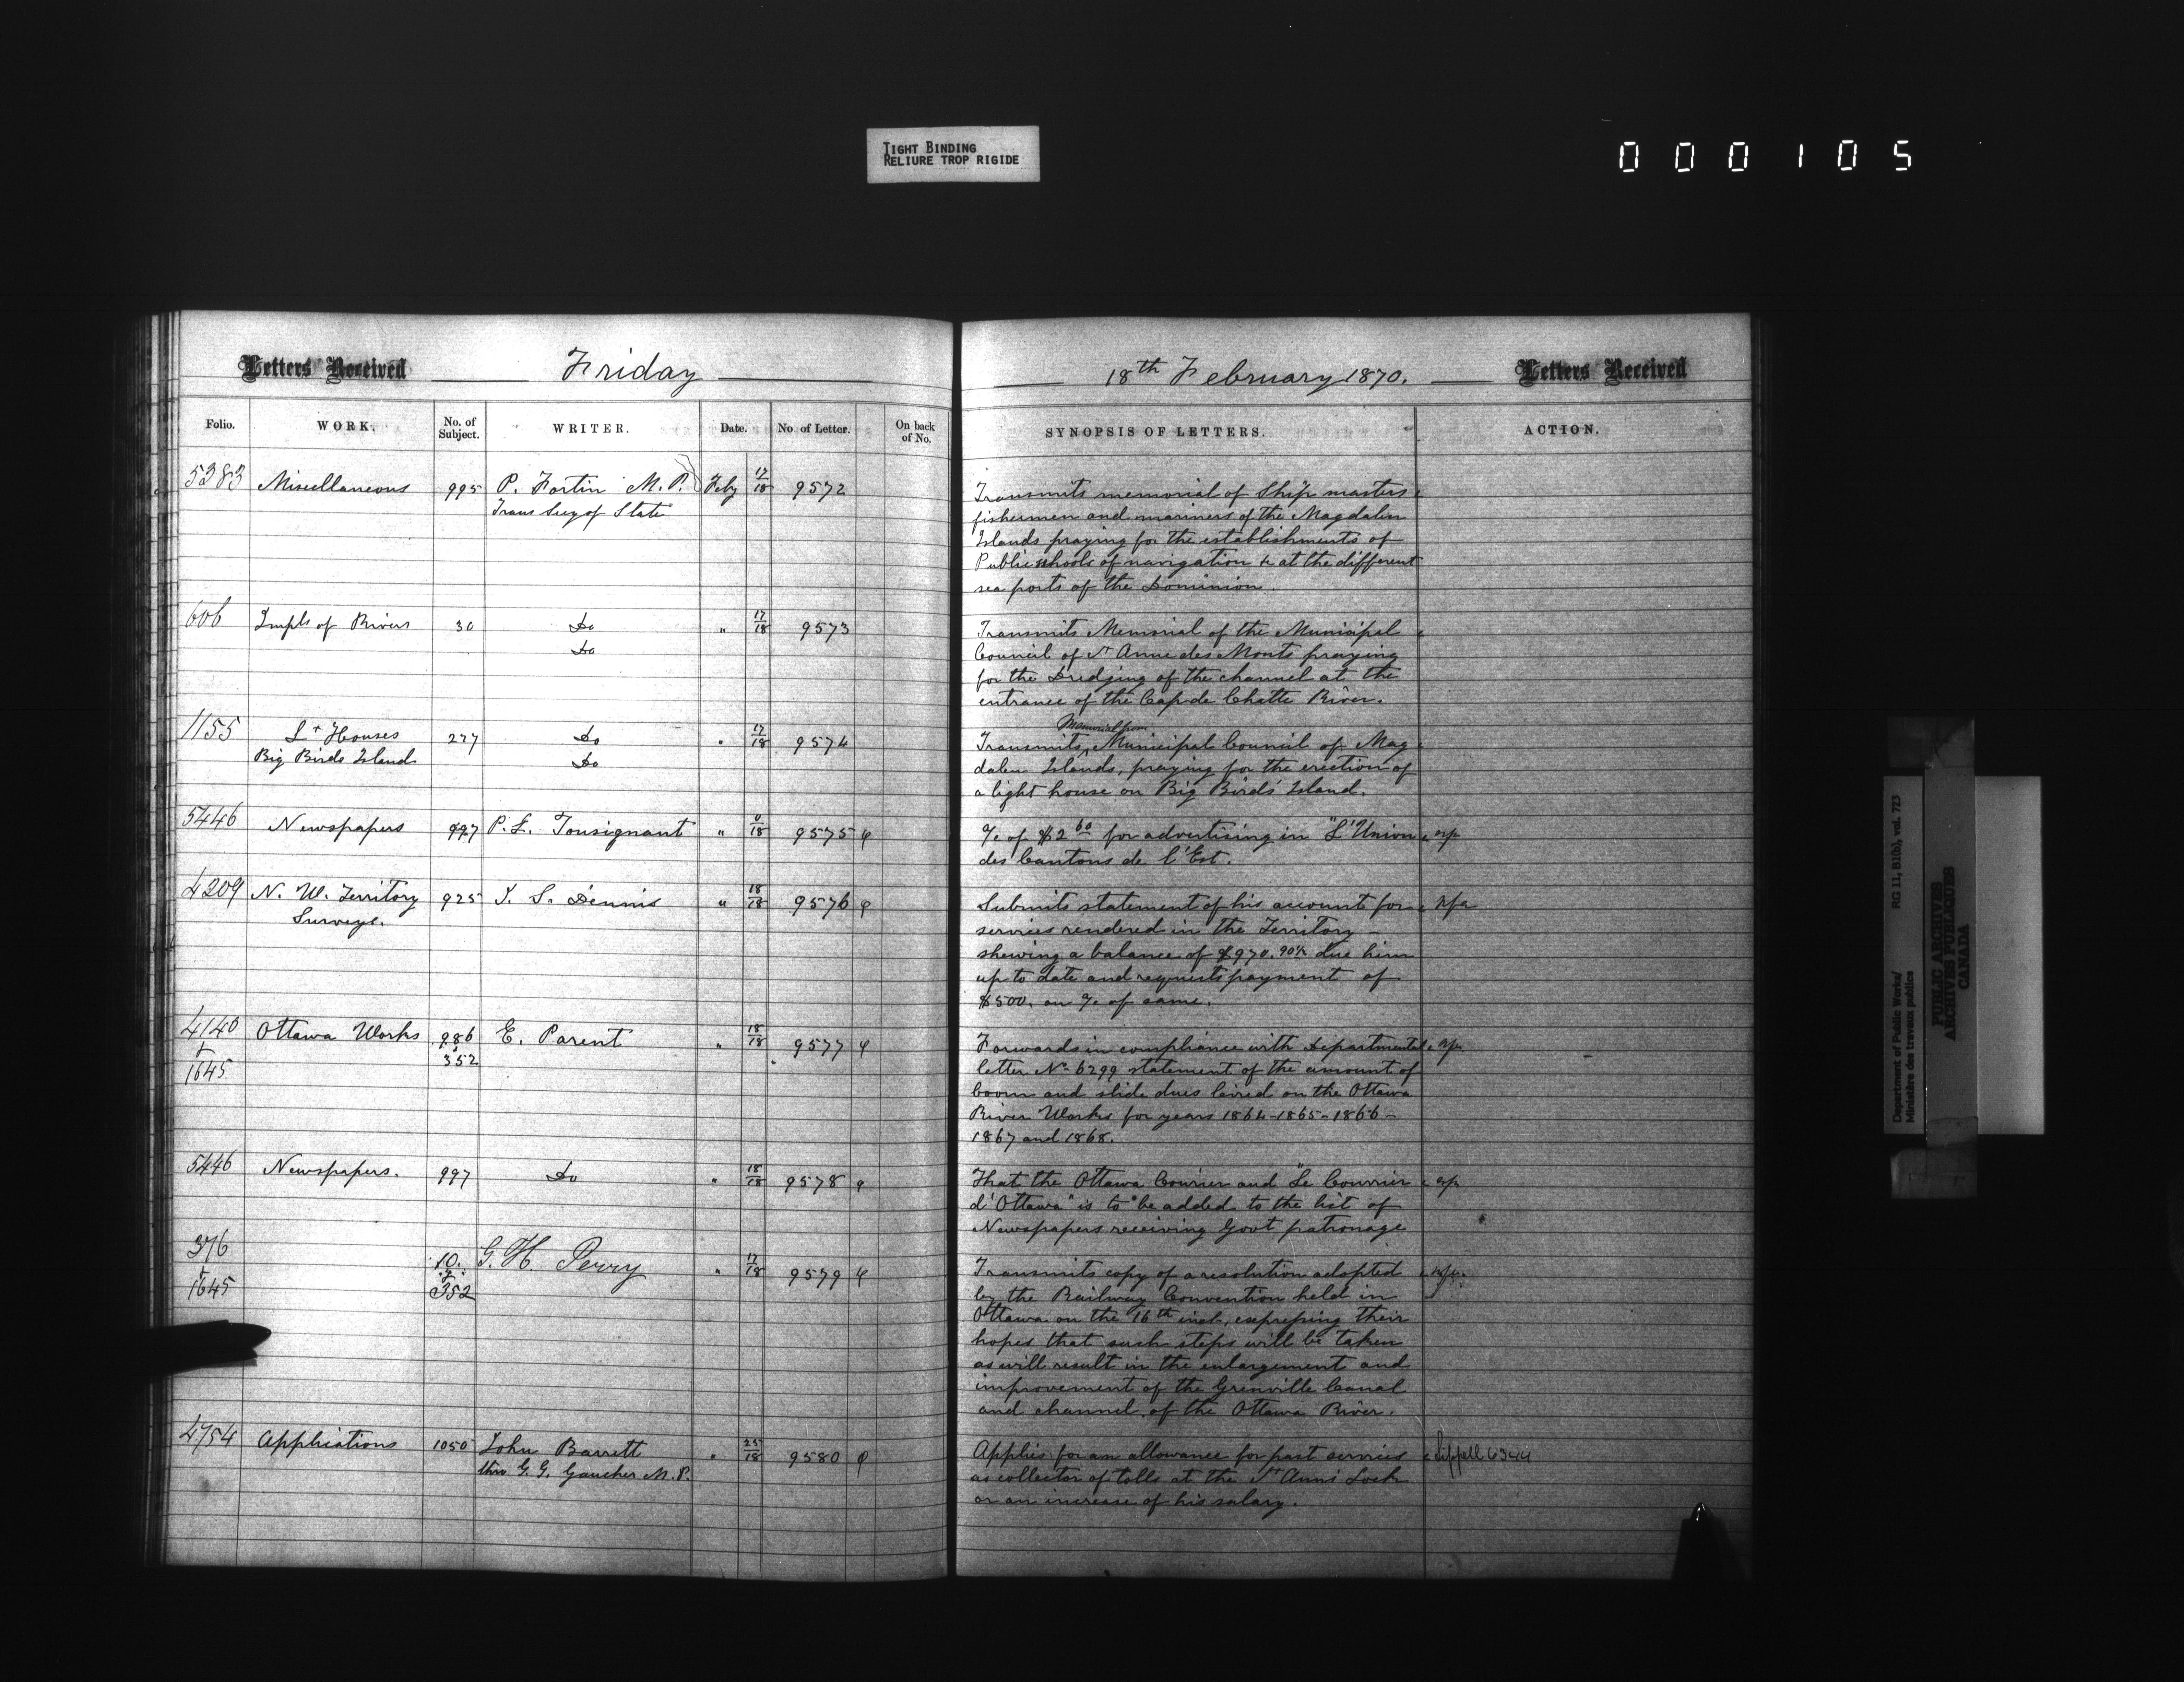 TIGHT BINDING
RELIURE TROP RIGIDE
000105
Letters Received Friday
18th February 1870. Letters Received
Folio. WORK. No. of Subject. WRITER. Date. No. of Letter. On back of No.
SYNOPSIS OF LETTERS. ACTION.
5383 Miscellaneous 995 P. Fortin M.P. Feby 17/18 9572
Trans Secy of State
Transmits memorial of Ship masters
fishermen and mariners of the Magdalen
Islands praying for the establishments of
Public schools of navigation &c at the different
sea ports of the Dominion.
606 Impts of Rivers 30 Do " 17/18 9573
Do
Transmits Memorial of the Municipal
Council of St Anne des Monts praying
for the Dredging of the channel at the
entrance of the Cap de Chatte River.
1155 Lt Houses 277 Do " 17/18 9574
Big Birds Island Do
Memorial from
Transmits Municipal Council of Mag
dalen Islands, praying for the erection of
a light house on Big Birds Island.
5446 Newspapers 997 P. L. Tousignant " 0/18 9575
a/c of $2 60 for advertising in "L'Union
des Cantons de l'Est.
4209 N. W. Territory 925 J. S. Dennis " 18/18 9576
Surveys.
Submits statement of his account for nfa
services rendered in the Territory -
shewing a balance of $970.90c/ due him
up to date and requests payment of
$500. on a/c of same.
4140 Ottawa Works 986 E. Parent " 18/18 9577
& 352
1645
Forwards in compliance with Departmental
letter No 6299 statement of the amount of
boom and slide dues levied on the Ottawa
River Works for years 1864-1865-1866-
1867 and 1868.
5446 Newspapers. 997 Do " 18/18 9578
That the Ottawa Courier and "Le Courrier
d'Ottawa" is to be added to the list of
Newspapers receiving Govt patronage
376 10. G. H. Perry " 17/18 9579
& &
1645 352
Transmits copy of a resolution adopted
by the Railway Convention held in
Ottawa on the 16th inst, expressing their
hopes that such steps will be taken
as will result in the enlargement and
improvement of the Grenville Canal
and channel of the Ottawa River.
4754 Applications 1050 John Barrett " 25/18 9580
thro G. G. Gaucher M.P.
Applies for an allowance for past services Sippell 6344
as collector of tolls at the St Anns Lock
or an increase of his salary.
Department of Public Works/ RG 11, B1(b), vol. 723
Ministère des travaux publics
PUBLIC ARCHIVES
ARCHIVES PUBLIQUES
CANADA